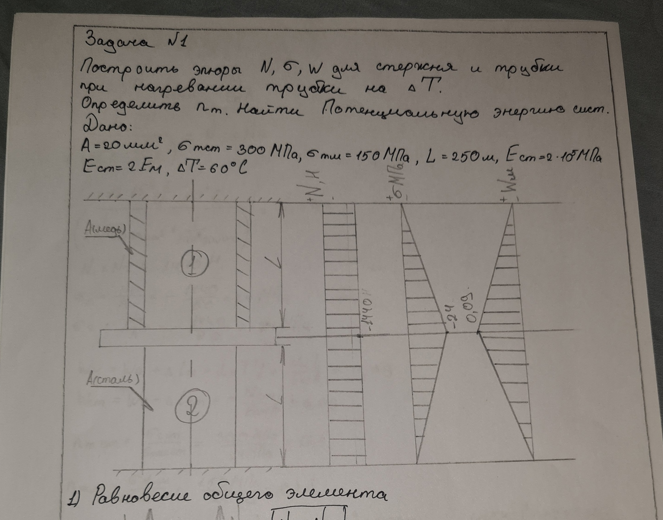 Задача №1
Построить эпюры N, σ, W для стержня и трубки
при нагревании трубки на ΔT.
Определить n т. Найти Потенциальную энергию сист.
Дано:
A=20мм², σ тст = 300 МПа, σ тм = 150 МПа, L = 250 м, Eст=2·10⁵ МПа
Eст= 2Eм, ΔT=60°C
+N,Н
+σ МПа
+Wм
A(медь)
1
L
-1440
-24
0,09
A(сталь)
2
L
1) Равновесие общего элемента